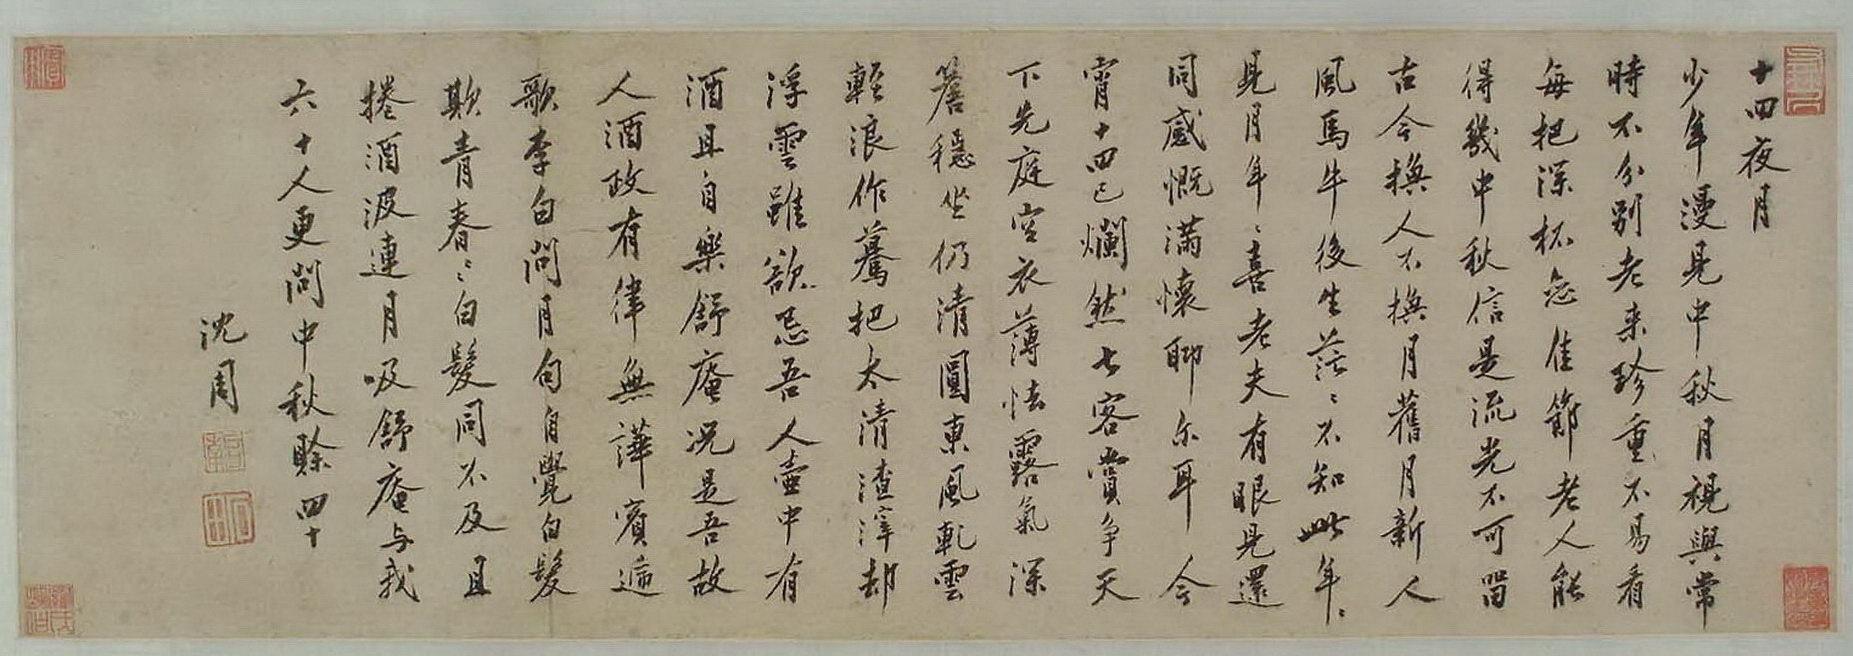 十四夜月
少年漫見中秋月視與常
時不分別老来珍重不易看
每把深杯戀佳節老人能
得幾中秋信是流光不可留
古今換人不換月舊月新人
風馬牛後生茫〻不知此年〻
見月年〻喜老夫有眼見還
同感慨滿懷聊尔耳今
宵十四已爛然七客賞爭天
下先庭空衣薄怯露氣深
簷穩坐仍清圓東風軋雲
輕浪作驀把太清渣滓却
浮雲雖欲忌吾人壺中有
酒且自樂舒庵況是吾故
人酒政有律無譁賓遞
歌李白問月句自覺白髮
欺青春〻〻白髮同不及且
捲酒波連月吸舒庵与我
六十人更問中秋賒四十
沈周